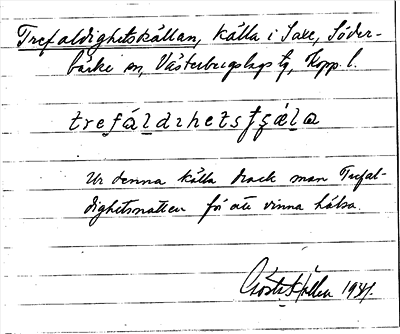 Trefaldighetskällan, källa i Saxe, Söder-
bärke sn, Västerbergslags tg, Kopp. l.
trefáldıhetsʃɕæ̀la
Ur denna källa drack man Trefal-
dighetsnatten för att vinna hälsa.
Gösta Källen 1931.